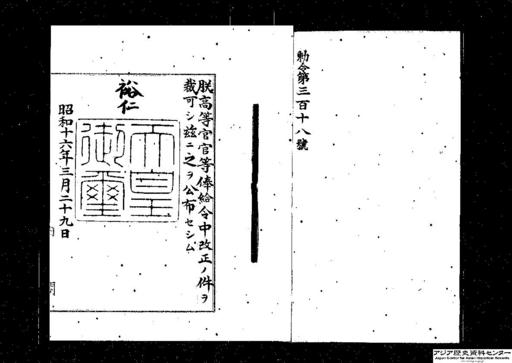 勅令第三百十八號
朕高等官官等俸給令中改正ノ件ヲ
裁可シ玆ニ之ヲ公布セシム
裕仁
天皇
御璽
昭和十六年三月二十九日
内
閣
アジア歴史資料センター
Japan Center for Asian Historical Records